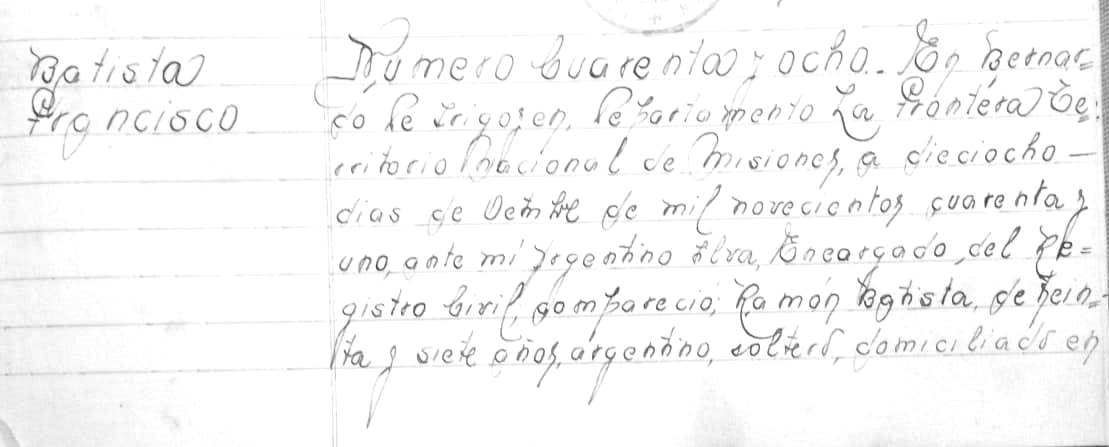 Batista
Francisco
Número Cuarenta y ocho. En Bernar=
do de Irigoyen, Departamento La Frontera Te=
rritorio Nacional de Misiones, a dieciocho —
dias de Octubre de mil novecientos cuarenta y
uno, ante mi Argentino Alva, Encargado del Re=
gistro Civil, compareció; Ramón Batista, de Trein=
ta y siete años, argentino, soltero, domiciliado en